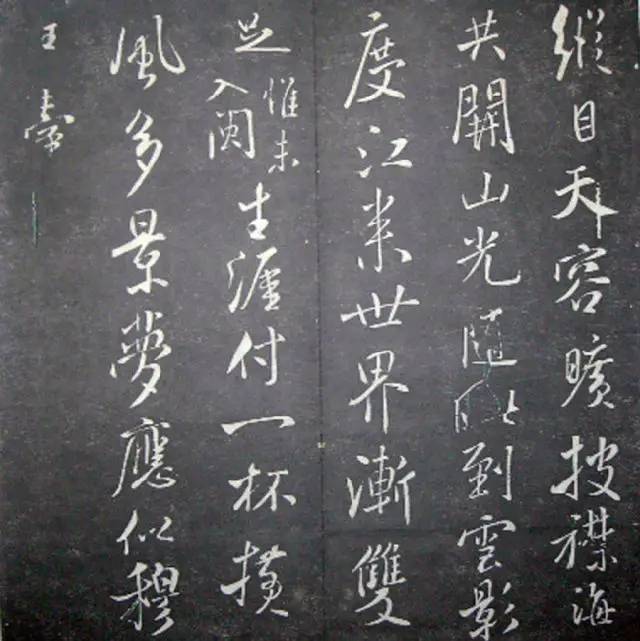 縱目天容曠披襟海
共開山光隨眦到雲影
度江来世界漸雙
足惟未入閩生涯付一杯橫
風多景夢應似穆
王臺